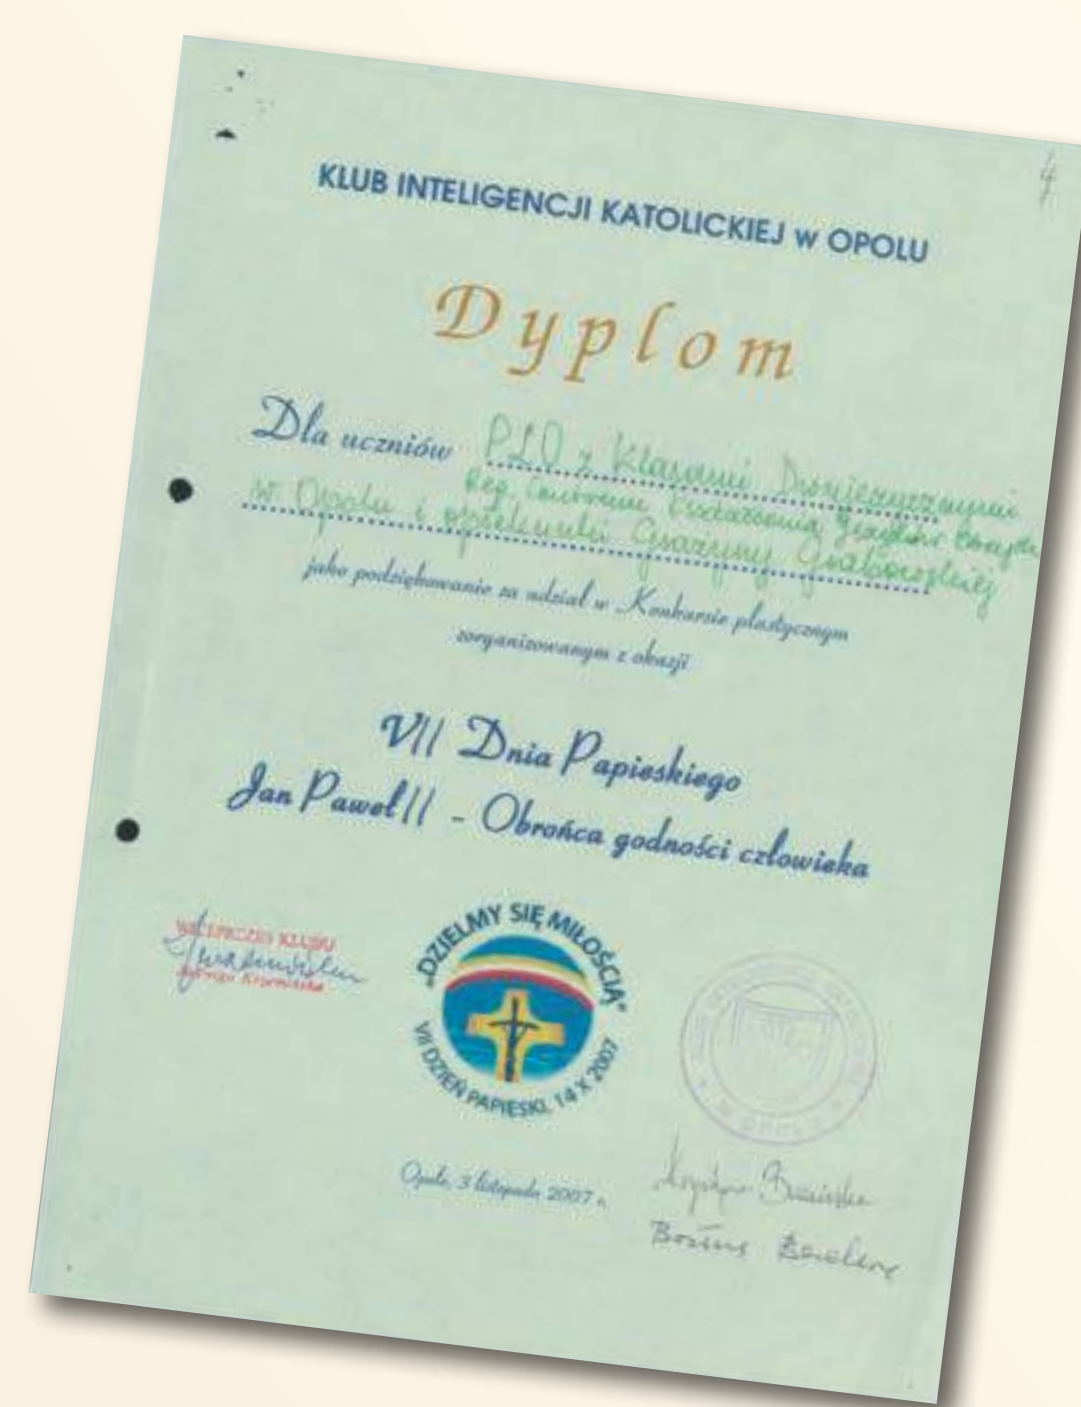 4
KLUB INTELIGENCJI KATOLICKIEJ w OPOLU
Dyplom
Dla uczniów PLO z Klasami Dwujęzycznymi
Reg. Centrum Kształcenia Języków
w Opolu i opiekunki Grażyny
jako podziękowanie za udział w Konkursie plastycznym
zorganizowanym z okazji
VII Dnia Papieskiego
Jan Paweł II - Obrońca godności człowieka
WICEPREZES KLUBU
„DZIELMY SIĘ MIŁOŚCIĄ"
VII DZIEŃ PAPIESKI, 14 X 2007
Opole, 3 listopada 2007 r.
Krystyna
Bożena